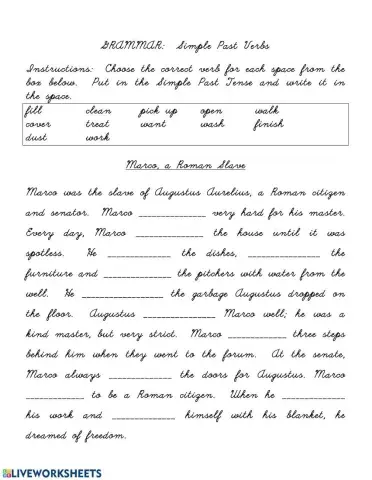 GRAMMAR: Simple Past Verbs
Instructions: Choose the correct verb for each space from the
box below. Put in the Simple Past Tense and write it in
the space.
fill clean pick up open walk
cover treat want wash finish
dust work
Marco, a Roman Slave
Marco was the slave of Augustus Aurelius, a Roman citizen
and senator. Marco ______________ very hard for his master.
Every day, Marco ______________ the house until it was
spotless. He _____________ the dishes, _______________ the
furniture and ______________ the pitchers with water from the
well. He _________________ the garbage Augustus dropped on
the floor. Augustus _______________ Marco well; he was a
kind master, but very strict. Marco ____________ three steps
behind him when they went to the forum. At the senate,
Marco always _____________ the doors for Augustus. Marco
____________ to be a Roman citizen. When he _____________
his work and _____________ himself with his blanket, he
dreamed of freedom.
LIVEWORKSHEETS